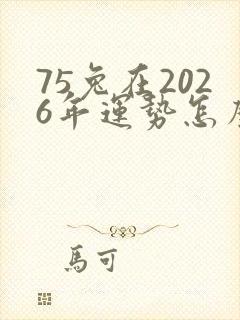 75兔在202
6年運勢怎
馬可